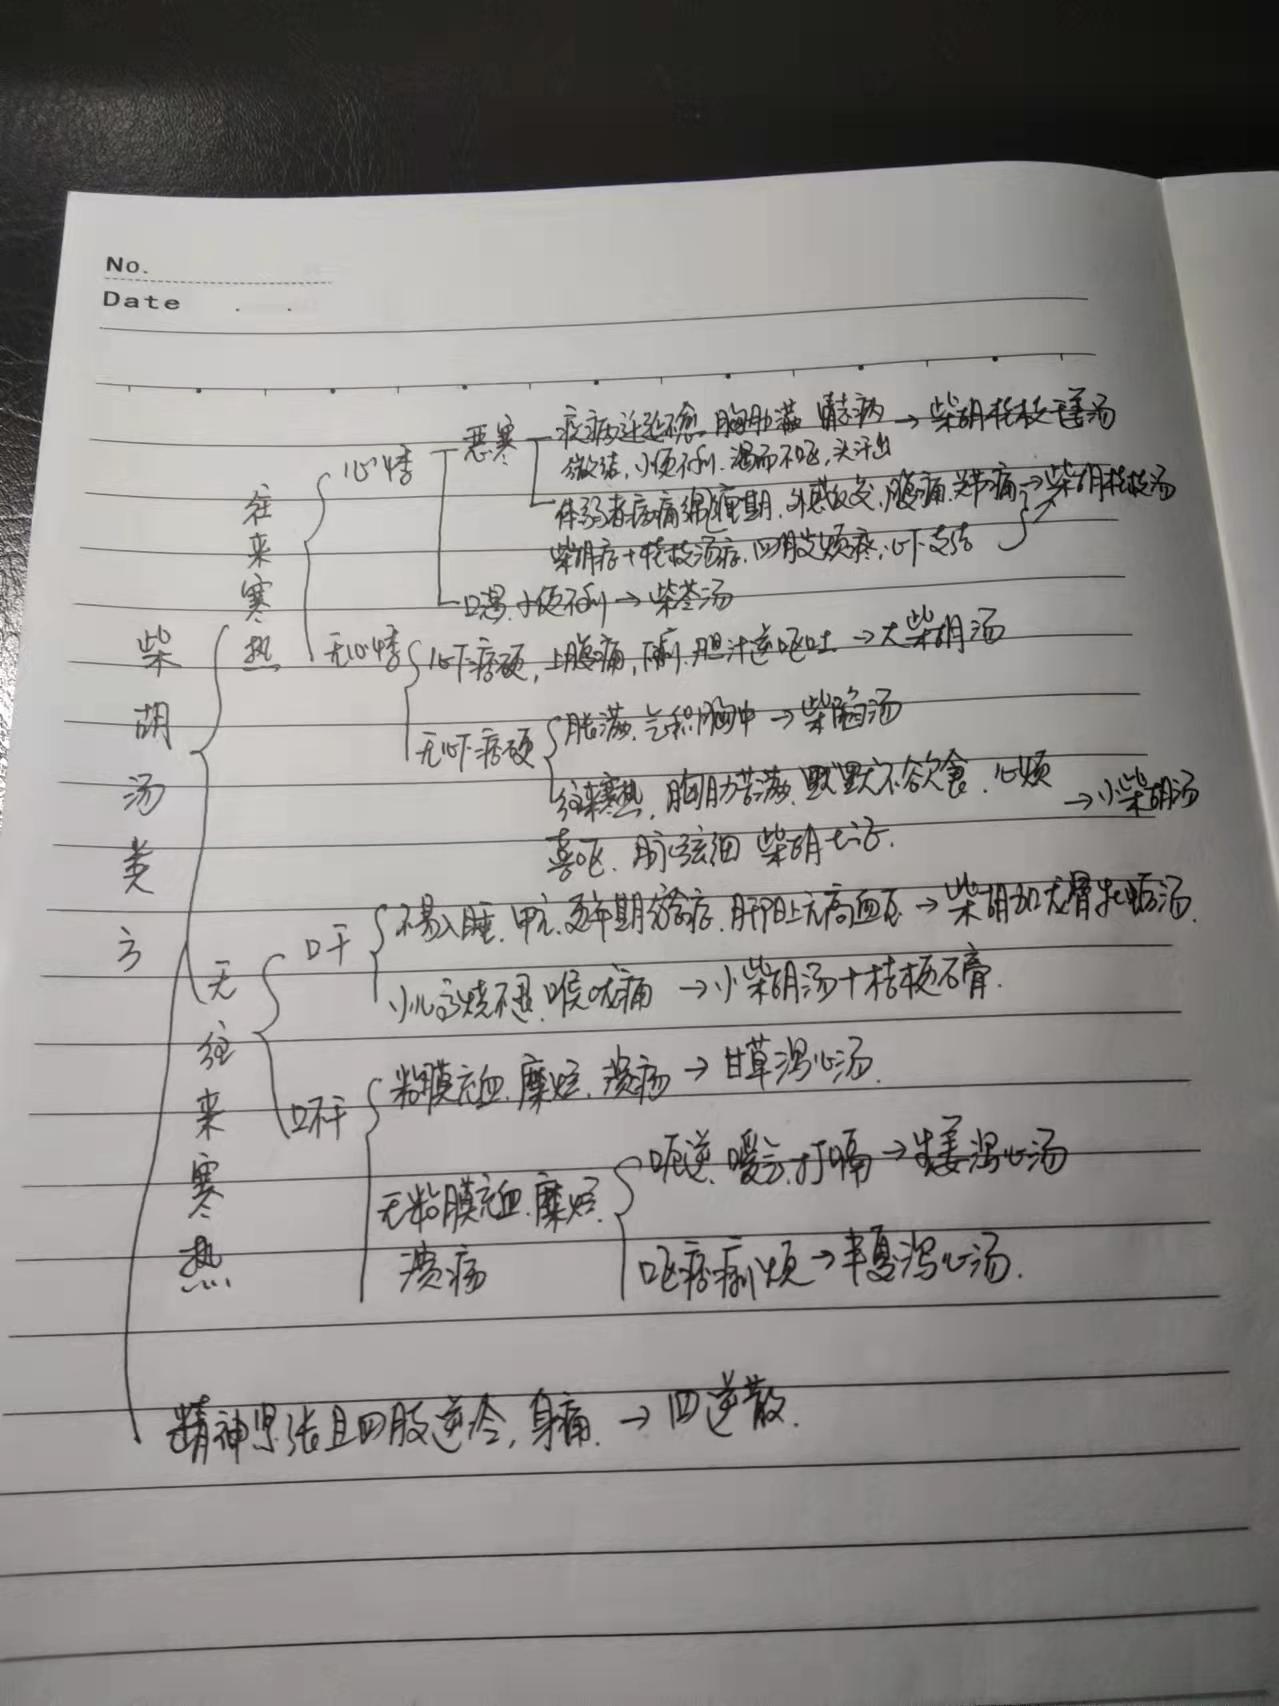 No.
Date
柴胡汤类方
往来寒热
心悸
恶寒
疾病迁延不愈 胸胁满 情志病 → 柴胡桂枝干姜汤
微结,小便不利.渴而不呕,头汗出
体弱者疾病 期.外感 腹痛.关节痛 → 柴胡桂枝汤
柴胡症+桂枝汤症.四肢烦疼,心下支结
口渴.小便不利 → 柴苓汤
无心悸
心下痞硬,上腹痛,下利.胆汁逆呕吐 → 大柴胡汤
无心下痞硬
胀满.气积胸中 → 柴陷汤
往来寒热,胸胁苦满.默默不欲饮食.心烦 → 小柴胡汤
喜呕.脉弦细 柴胡七证.
无往来寒热
口干
不易入睡.甲亢.更年期综合症.肝阳上亢高血压 → 柴胡加龙骨牡蛎汤.
小儿高烧不退.喉咙痛 → 小柴胡汤+桔梗石膏.
口不干
粘膜充血.糜烂.溃疡 → 甘草泻心汤.
无粘膜充血.糜烂.
溃疡
呃逆.嗳气.打嗝 → 生姜泻心汤
呕痞痢烦 → 半夏泻心汤.
精神紧张且四肢逆冷,身痛. → 四逆散.